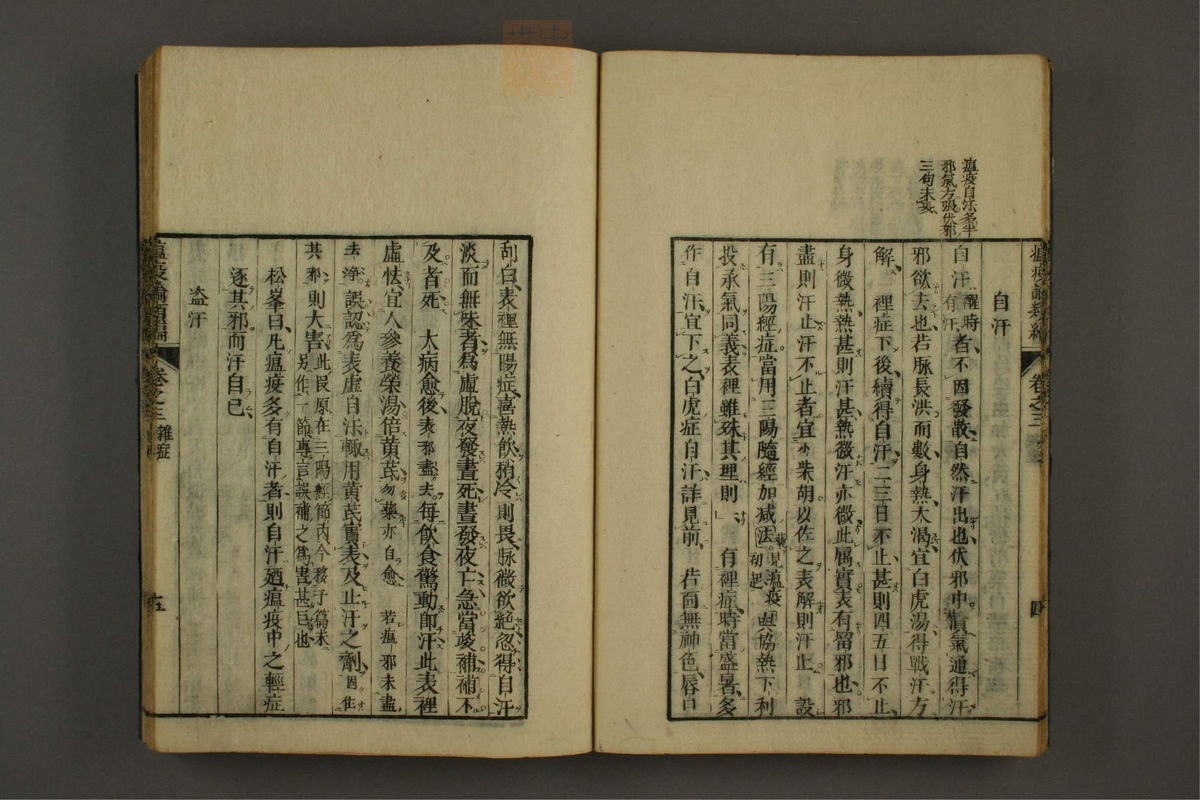 瘟疫自汗多半
邪氣方張伏邪
三句未妥
瘟疫論類編
卷之三
四
自汗
自汗 醒時有汗 者不因發散自然汗出也伏邪中潰氣通得汗
邪欲去也若脉長洪而數身熱大渴宜白虎湯得戰汗方
解 裡症下後續得自汗二三日不止甚則四五日不止
身微熱熱甚則汗甚熱微汗亦微此屬實表有留邪也邪
盡則汗止汗不止者宜小柴胡以佐之表解則汗止 設
有三陽經症當用三陽隨經加減法 見瘟疫初起 與協熱下利
投承氣同義表裡雖殊其理則一 有裡症時當盛暑多
作自汗宜下之白虎症自汗詳見前 若面無神色唇口
刮白表裡無陽症喜熱飲稍冷則畏脉微欲絕忽得自汗
淡而無味者為虛脫夜發晝死晝發夜亡急當峻補補不
及者死 大病愈後表邪盡去每飲食驚動即汗此表裡
虛怯宜人參養榮湯倍黃芪勿藥亦自愈 若瘟邪未盡
去淨誤認為表虛自汗輙用黃芪實表及止汗之劑因住
其邪則大害 此段原在三陽經節內今移于篇末
另作一節專言誤補之為害甚巨也
松峯曰凡瘟疫多有自汗者則自汗廼瘟疫中之輕症
逐其邪而汗自已
盜汗
瘟疫論類編
卷之三 雜症
五